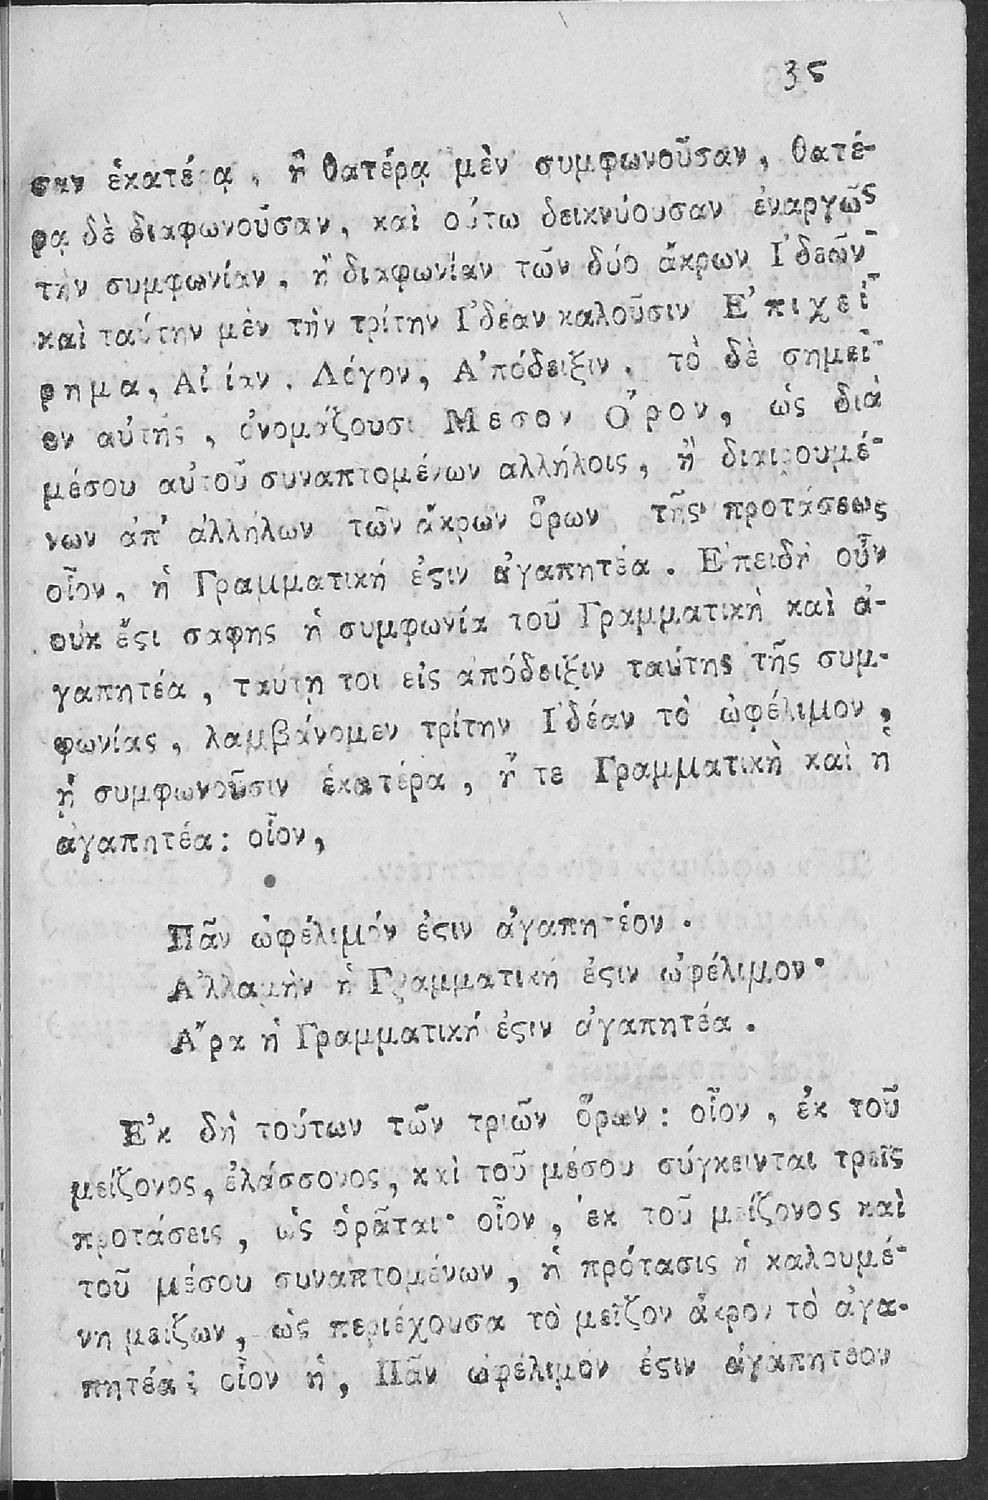 3ς
σαν ἑκατέρᾳ, ἢ θατέρᾳ μὲν συμφωνοῦσαν, θατέ-
ρᾳ δὲ διαφωνοῦσαν, καὶ οὕτω δεικνύουσαν ἐναργῶς
τὴν συμφωνίαν, ἢ διαφωνίαν τῶν δύο ἄκρων Ἰδεῶν-
καὶ ταύτην μὲν τὴν τρίτην Ἰδέαν καλοῦσιν Ἐπιχεί-
ρημα, Αἰτίαν, Λόγον, Ἀπόδειξιν, τὸ δὲ σημεῖ-
ον αὐτῆς, ὀνομάζουσι Μεσον Ὅρον, ὡς διὰ
μέσου αὐτοῦ συναπτομένων αλλήλοις, ἢ διαιρουμέ-
νων ἀπ' ἀλλήλων τῶν ἄκρων ὅρων τῆς προτάσεως
οἷον, ἡ Γραμματική ἐςιν ἀγαπητέα. Ἐπειδὴ οὖν
οὐκ ἔςι σαφης ἡ συμφωνία τοῦ Γραμματικὴ καὶ ἀ-
γαπητέα, ταύτῃ τοι εἰς ἀπόδειξιν ταύτης τῆς συμ-
φωνίας, λαμβάνομεν τρίτην Ἰδέαν τὸ ὠφέλιμον,
ᾗ συμφωνοῦσιν ἑκατέρα, ἥ τε Γραμματικὴ καὶ η
ἀγαπητέα: οἷον,
Πᾶν ὠφέλιμόν ἐςιν ἀγαπητέον.
Ἀλλαμὴν ἡ Γραμματική ἐςιν ὠφέλιμον·
Ἄρα ἡ Γραμματική ἐςιν ἀγαπητέα.
Ἐκ δὴ τούτων τῶν τριῶν ὅρων: οἷον, ἐκ τοῦ
μείζονος, ἐλάσσονος, καὶ τοῦ μέσου σύγκεινται τρεῖς
προτάσεις, ὡς ὁρᾶται· οἷον, ἐκ τοῦ μείζονος καὶ
τοῦ μέσου συναπτομένων, ἡ πρότασις ἡ καλουμέ-
νη μείζων, ὡς περιέχουσα τὸ μεῖζον ἄκρον τὸ ἀγα-
πητέα; οἷον ἡ, Πᾶν ὠφέλιμόν ἐςιν ἀγαπητέον